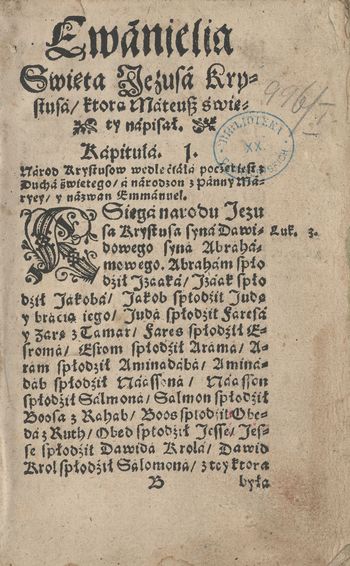 Ewánielia
Swieta Jezusá Kry-
stusá/ ktora Máteusz swie-
ty nápisał.
996/I
BIBLIOTEKI
XX.
Kápitulá. I.
Národ Krystusow wedle ciáłá poczet iest z
Duchá swietego/ á národzon z pánny Má-
ryey/ y názwan Emmánuel.
KSiegá narodu Jezu
sa Krystusa syná Dawi-
dowego syná Abrahá-
mowego. Abrahám spło
Luk. 3.
dził Izááká/ Izáak spło
dził Jakobá/ Jakob spłodził Jude
y brácią iego/ Judá spłodził Faresá
y Zarę z Tamar/ Fares spłodził E-
sromá/ Esrom spłodził Arámá/ A-
ram spłodził Aminádábá/ Aminá-
dáb spłodził Náássoná/ Náásson
spłodził Sálmoná/ Salmon spłodził
Boosá z Rahab/ Boos spłodził Obe-
dá z Ruth/ Obed spłodził Jesse/ Jes-
se spłodził Dawidá Krolá/ Dawid
Krol spłodził Sálomoná/ z tey ktora
B
była